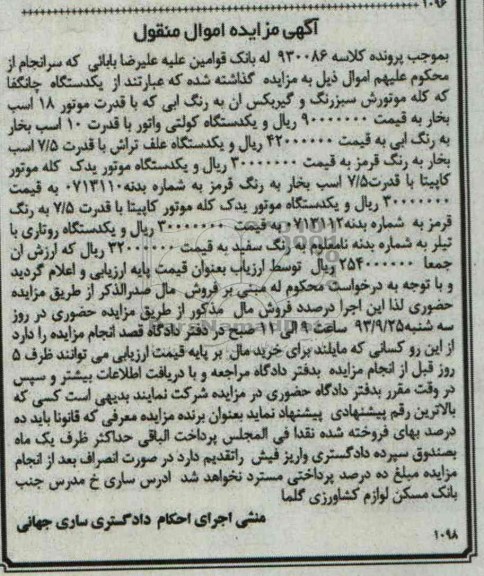 ۱۰۹۶
آگهی مزایده اموال منقول
بموجب پرونده کلاسه ۹۳۰۰۸۶ له بانک قوامین علیه علیرضا بابائی که سرانجام از
محکوم علیهم اموال ذیل به مزایده گذاشته شده که عبارتند از یکدستگاه چانگفا
که کله موتورش سبزرنگ و گیربکس ان به رنگ ابی که با قدرت موتور ۱۸ اسب
بخار به قیمت ۹۰۰۰۰۰۰۰ ریال و یکدستگاه کولتی واتور با قدرت ۱۰ اسب بخار
به رنگ ابی به قیمت ۴۲۰۰۰۰۰۰ ریال و یکدستگاه علف تراش با قدرت ۷/۵ اسب
بخار به رنگ قرمز به قیمت ۳۰۰۰۰۰۰۰ ریال و یکدستگاه موتور یدک کله موتور
کاپیتا با قدرت۷/۵ اسب بخار به رنگ قرمز به شماره بدنه۰۷۱۳۱۱۰ به قیمت
۳۰۰۰۰۰۰۰ ریال و یکدستگاه موتور یدک کله موتور کاپیتا با قدرت ۷/۵ به رنگ
قرمز به شماره بدنه۰۷۱۳۱۱۲ به قیمت ۳۰۰۰۰۰۰۰ ریال و یکدستگاه روتاری با
تیلر به شماره بدنه نامعلوم به رنگ سفید به قیمت ۳۲۰۰۰۰۰۰ ریال که ارزش ان
جمعا ۲۵۴۰۰۰۰۰۰ ریال توسط ارزیاب بعنوان قیمت پایه ارزیابی و اعلام گردید
و با توجه به درخواست محکوم له مبنی بر فروش مال صدرالذکر از طریق مزایده
حضوری لذا این اجرا درصدد فروش مال مذکور از طریق مزایده حضوری در روز
سه شنبه۹۳/۹/۲۵ ساعت ۹ الی ۱۱ صبح در دفتر دادگاه قصد انجام مزایده را دارد
از این رو کسانی که مایلند برای خرید مال بر پایه قیمت ارزیابی می توانند ظرف ۵
روز قبل از انجام مزایده بدفتر دادگاه مراجعه و با دریافت اطلاعات بیشتر و سپس
در وقت مقرر بدفتر دادگاه حضوری در مزایده شرکت نمایند بدیهی است کسی که
بالاترین رقم پیشنهادی پیشنهاد نماید بعنوان برنده مزایده معرفی که قانونا باید ده
درصد بهای فروخته شده نقدا فی المجلس پرداخت الباقی حداکثر ظرف یک ماه
بصندوق سپرده دادگستری واریز فیش راتقدیم دارد در صورت انصراف بعد از انجام
مزایده مبلغ ده درصد پرداختی مسترد نخواهد شد ادرس ساری خ مدرس جنب
بانک مسکن لوازم کشاورزی گلما
منشی اجرای احکام دادگستری ساری جهانی
۱۰۹۸